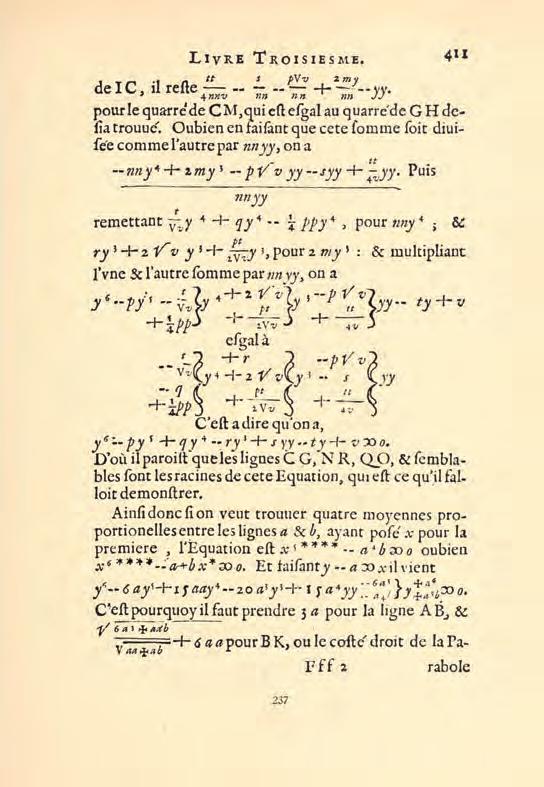 LIVRE TROISIESME. 411
de IC, il reste tt/4nnv -- s/nn -- p√v/nn + 2my/nn --yy.
pour le quarré de CM, qui est esgal au quarré de GH de-
sia trouué. Oubien en faisant que cete somme soit diui-
sée comme l'autre par nnyy, on a
--nny⁴ + 2my³ -- p√v yy --syy + tt/4v yy. Puis
nnyy
remettant t/√v y⁴ + qy⁴ -- ¼ ppy⁴, pour nny⁴; &
ry³ + 2√v y³ + pt/2√v y³, pour 2 my³: & multipliant
l'vne & l'autre somme par nnyy, on a
y⁶ --py⁵ -- t/√v } y⁴ + 2√v } y³ --p√v } yy -- ty + v
+ ¼pp + pt/2√v + tt/4v
esgal à
-- t/√v } + r } --p√v }
y⁴ + 2√v y³ -- s yy
-- q
+ ¼pp + pt/2√v + tt/4v
C'est a dire qu'on a,
y⁶ -- py⁵ + qy⁴ -- ry³ + syy -- ty + v ∞ 0.
D'où il paroist que les lignes CG, NR, QO, & sembla-
bles sont les racines de cete Equation, qui est ce qu'il fal-
loit demonstrer.
Ainsi donc si on veut trouuer quatre moyennes pro-
portionelles entre les lignes a & b, ayant posé x pour la
premiere, l'Equation est x⁵ * * * * -- a⁴b ∞ 0 oubien
x⁶ * * * * -- a⁴bx * ∞ 0. Et faisant y -- a ∞ x il vient
y⁶ -- 6ay⁵ + 15aay⁴ -- 20a³y³ + 15a⁴yy -- 6a⁵ } y + a⁶ ∞ 0.
-- a⁴b + a⁵b
C'est pourquoy il faut prendre 3a pour la ligne AB, &
√ 6a³ + aab
√ aa + ab + 6aa pour BK, ou le costé droit de la Pa-
Fff 2 rabole
237